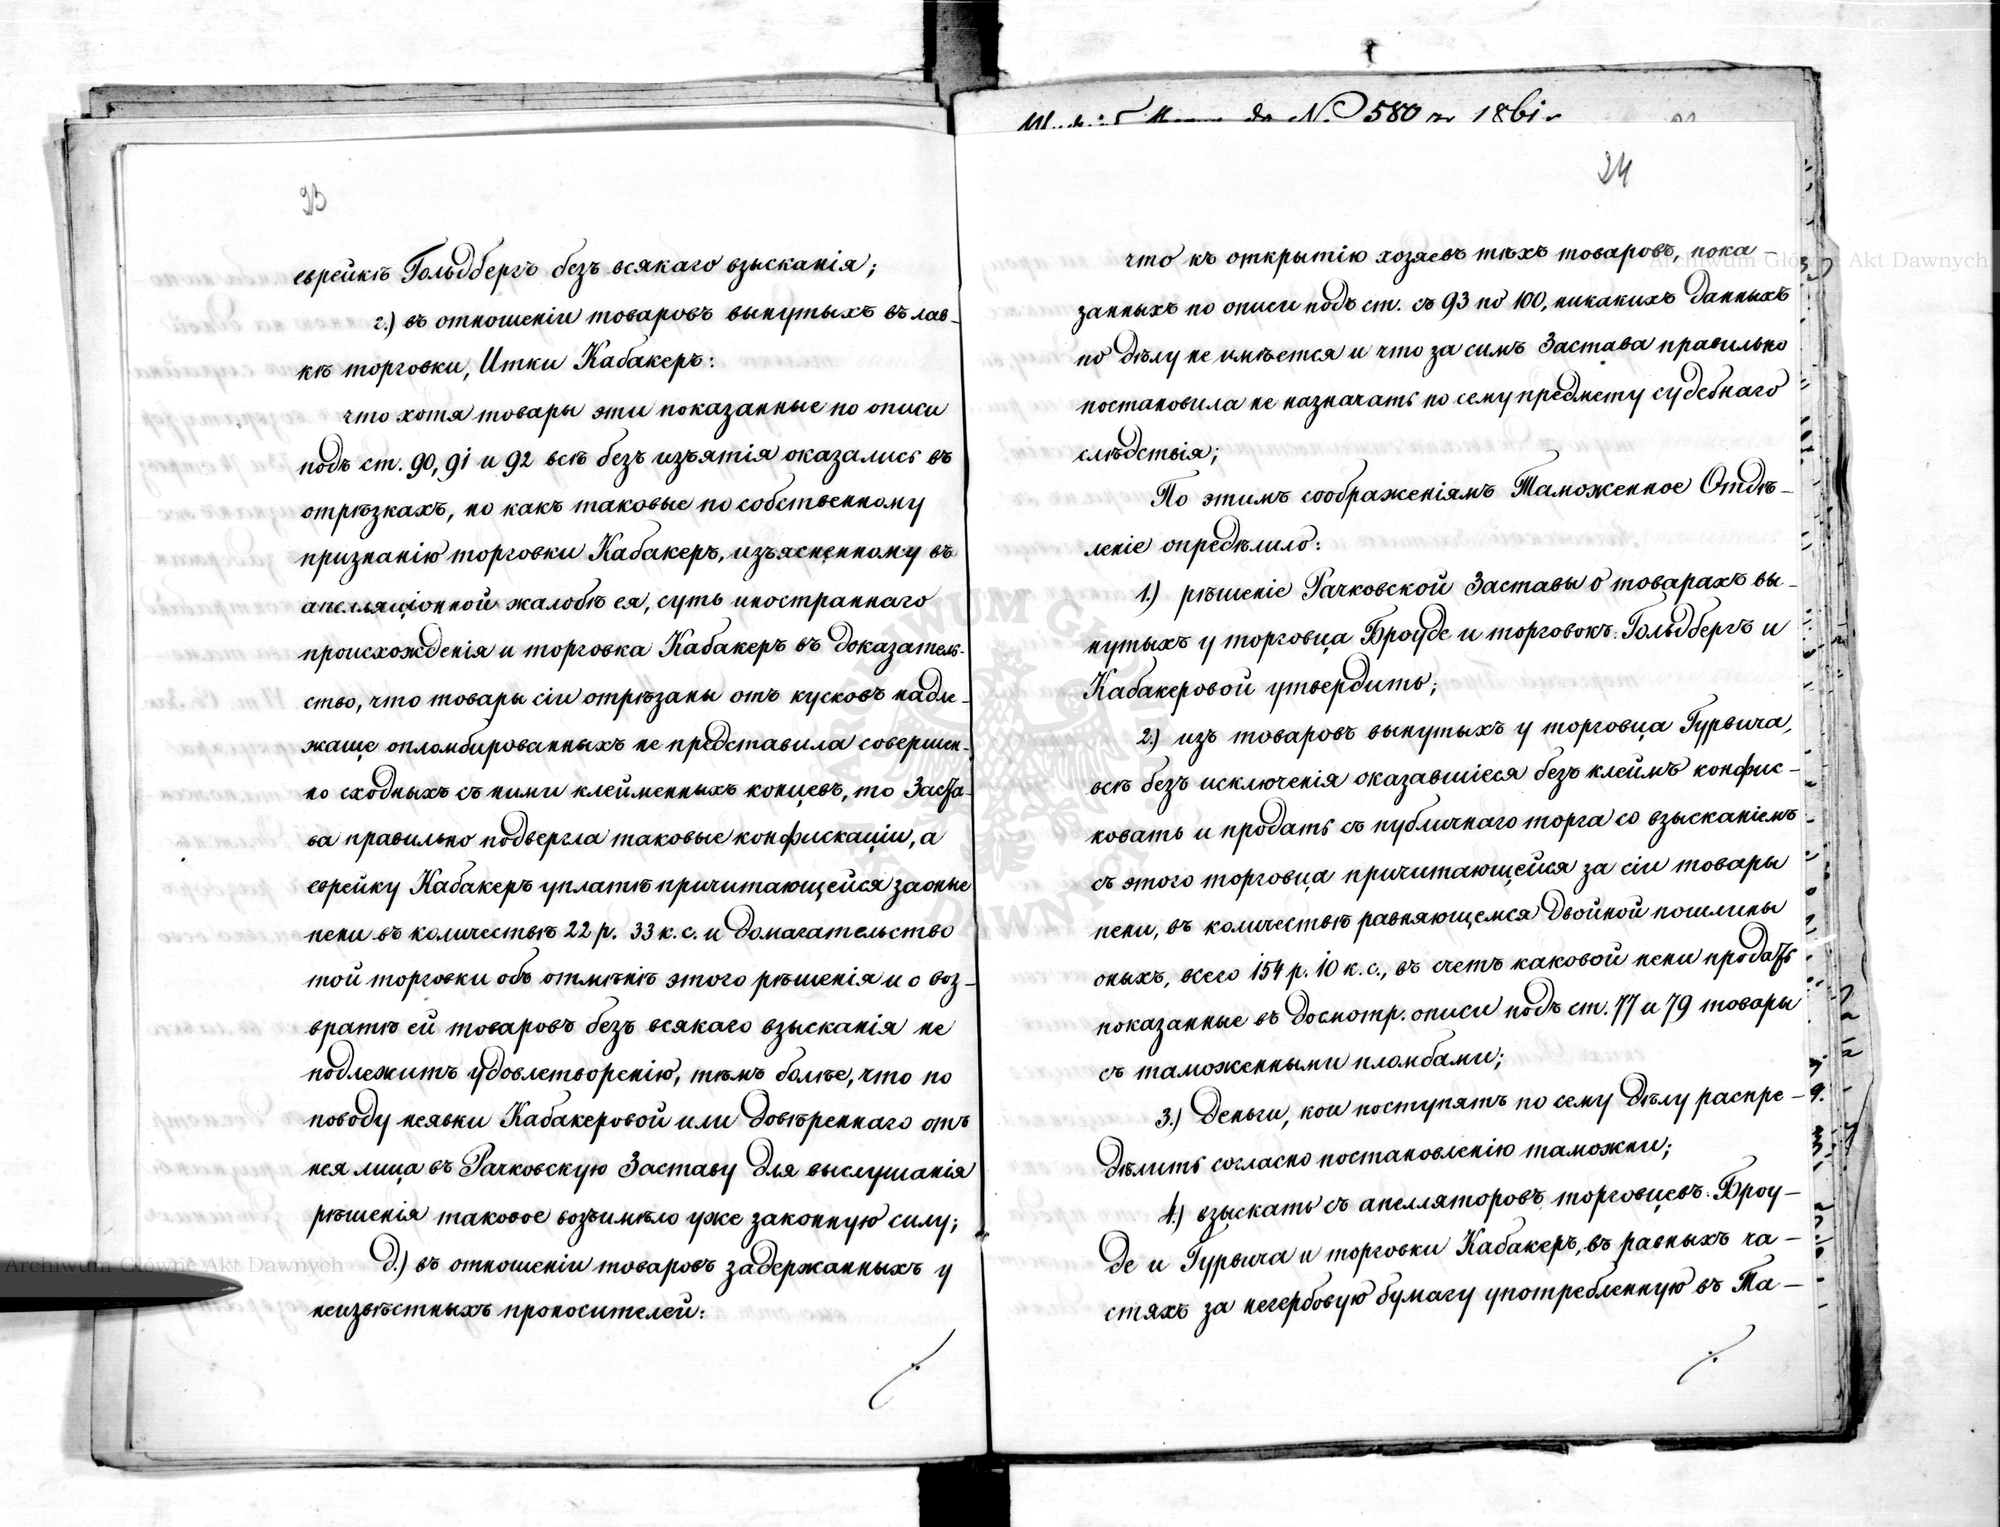 23
еврейкѣ Гольдбергъ безъ всякаго взысканія;
г.) въ отношеніи товаровъ вынутыхъ въ лав-
кѣ торговки, Итки Кабакеръ:
что хотя товары эти показанные по описи
подъ ст. 90, 91 и 92 всѣ безъ изъятія оказались въ
отрѣзкахъ, но какъ таковые по собственному
признанію торговки Кабакеръ, изъясненному въ
апелляціонной жалобѣ ея, суть иностраннаго
происхожденія и торговка Кабакеръ въ доказатель-
ство, что товары сіи отрѣзаны отъ кусковъ надле-
жаще опломбированныхъ не представила совершен-
но сходныхъ съ ними клейменныхъ концевъ, то Заста-
ва правильно подвергла таковые конфискаціи, а
еврейку Кабакеръ уплатѣ причитающейся за оные
пени въ количествѣ 22 р. 33 к. с. и домагательство
той торговки объ отмѣнѣ этого рѣшенія и о воз-
вратѣ ей товаровъ безъ всякаго взысканія не
подлежитъ удовлетворенію, тѣмъ болѣе, что по
поводу неявки Кабакеровой или довѣреннаго отъ
нея лица въ Рачковскую Заставу для выслушанія
рѣшенія таковое возъимѣло уже законную силу;
д.) въ отношеніи товаровъ задержанныхъ у
неизвѣстныхъ проносителей:
№ 580 1861
24
что къ открытію хозяевъ тѣхъ товаровъ, пока-
занныхъ по описи подъ ст. съ 93 по 100, никакихъ данныхъ
по дѣлу не имѣется и что за симъ Застава правильно
постановила не назначать по сему предмету судебнаго
слѣдствія;
По этимъ соображеніямъ Таможенное Отдѣ-
леніе опредѣлило:
1.) рѣшеніе Рачковской Заставы о товарахъ вы-
нутыхъ у торговца Броуде и торговокъ: Гольдбергъ и
Кабакеровой утвердить;
2.) изъ товаровъ вынутыхъ у торговца Гурвича,
всѣ безъ исключенія оказавшіеся безъ клеймъ конфис-
ковать и продать съ публичнаго торга со взысканіемъ
съ этого торговца причитающейся за сіи товары
пени, въ количествѣ равняющемся двойной пошлины
оныхъ, всего 154 р. 10 к. с., въ счетъ каковой пени продать
показанные въ досмотр. описи подъ ст. 77 и 79 товары
съ таможенными пломбами;
3.) деньги, кои поступятъ по сему дѣлу распре-
дѣлить согласно постановленію таможни;
4.) взыскать съ апелляторовъ торговцевъ: Броу-
де и Гурвича и торговки Кабакеръ, въ равныхъ ча-
стяхъ за негербовую бумагу употребленную въ Та-
Archiwum Główne Akt Dawnych
Archiwum Główne Akt Dawnych